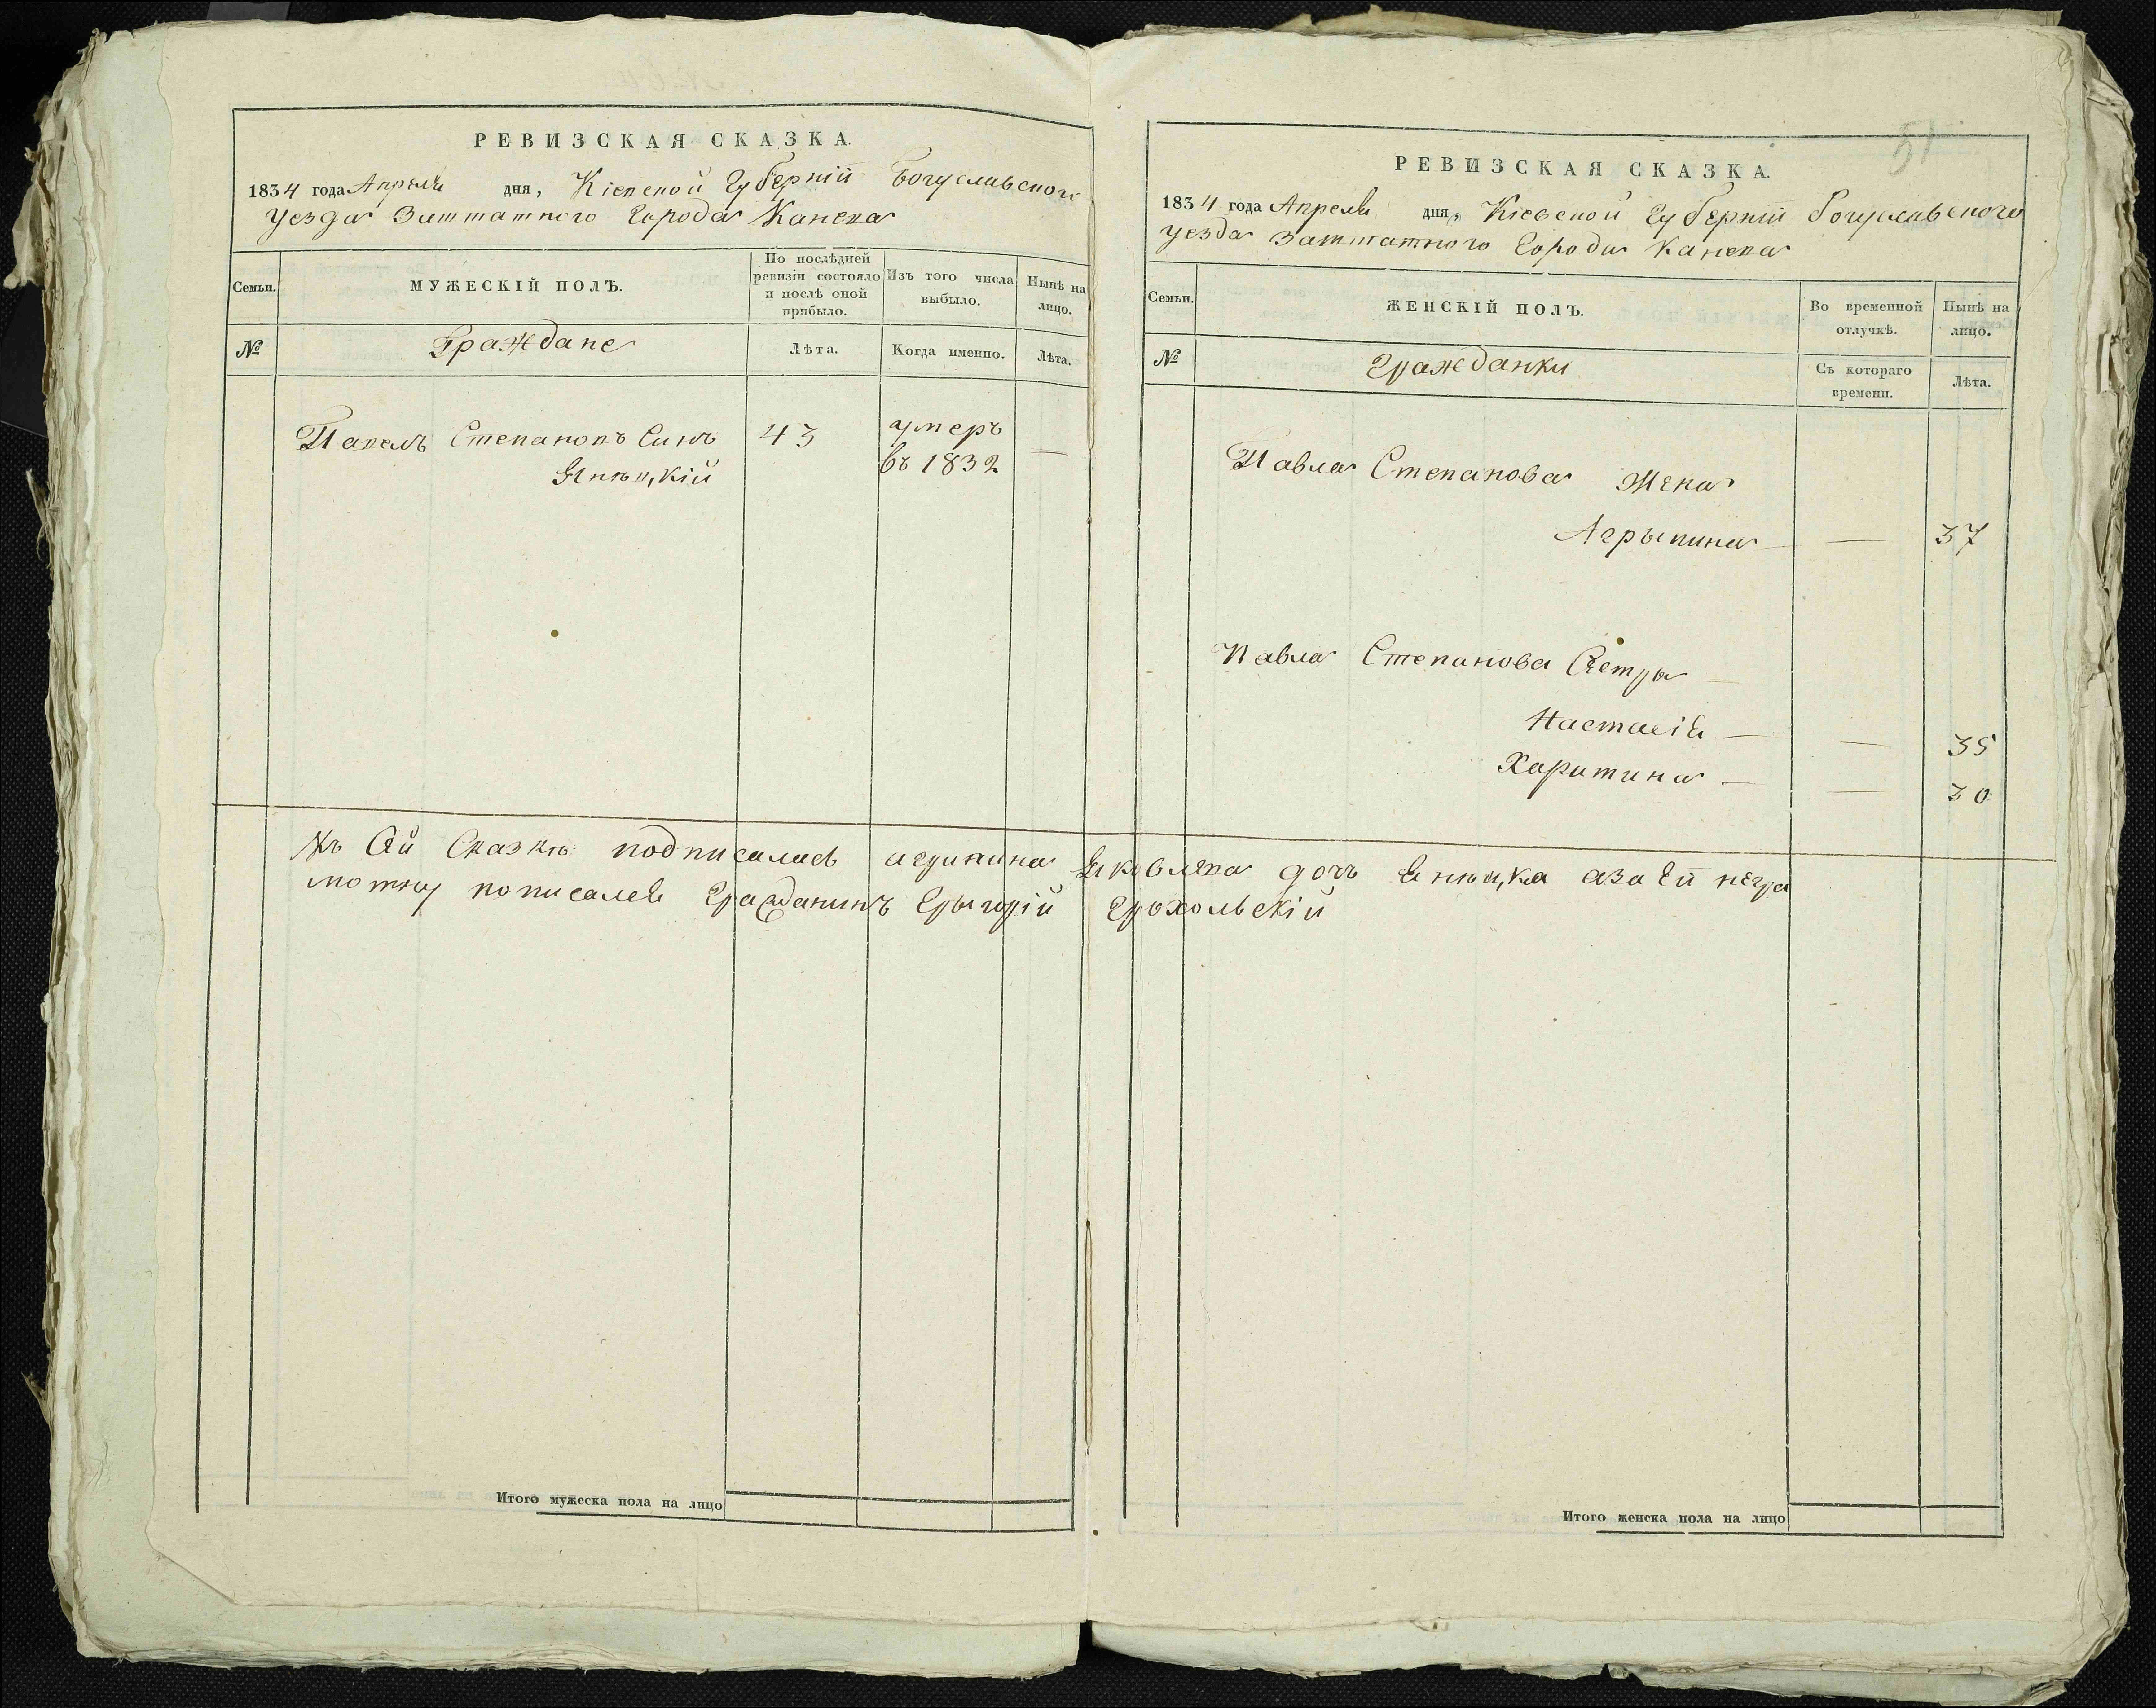 РЕВИЗСКАЯ СКАЗКА.
1834 года Апреля дня, Кіевской Губерній Богуславского
уезда Заштатного Города Канева
Семьи.
МУЖЕСКІЙ ПОЛЪ.
По послѣдней
ревизіи состояло
и послѣ оной
прибыло.
Изъ того числа
выбыло.
Нынѣ на
лицо.
№
Граждане
Лѣта.
Когда именно.
Лѣта.
Павелъ Степановъ Синъ
43
умеръ
въ 1832
—
Яницкій
51
РЕВИЗСКАЯ СКАЗКА.
1834 года Апреля дня, Кіевской Губерній Богуславского
уезда Заштатного Города Канева
Семьи.
ЖЕНСКІЙ ПОЛЪ.
Во временной
отлучкѣ.
Нынѣ на
лицо.
№
Гражданки
Съ котораго
времени.
Лѣта.
Павла Степанова Жена
Агрыпина — — 37
Павла Степанова Сестры —
Настасія — — 35
Харитина — — 30
Къ Сей Сказкѣ подписалась агрипина Яковлева дочъ а за Ей негра
мотну пописалея Гражданинъ Грыгорій Грохольскій
Итого мужеска пола на лицо
Итого женска пола на лицо